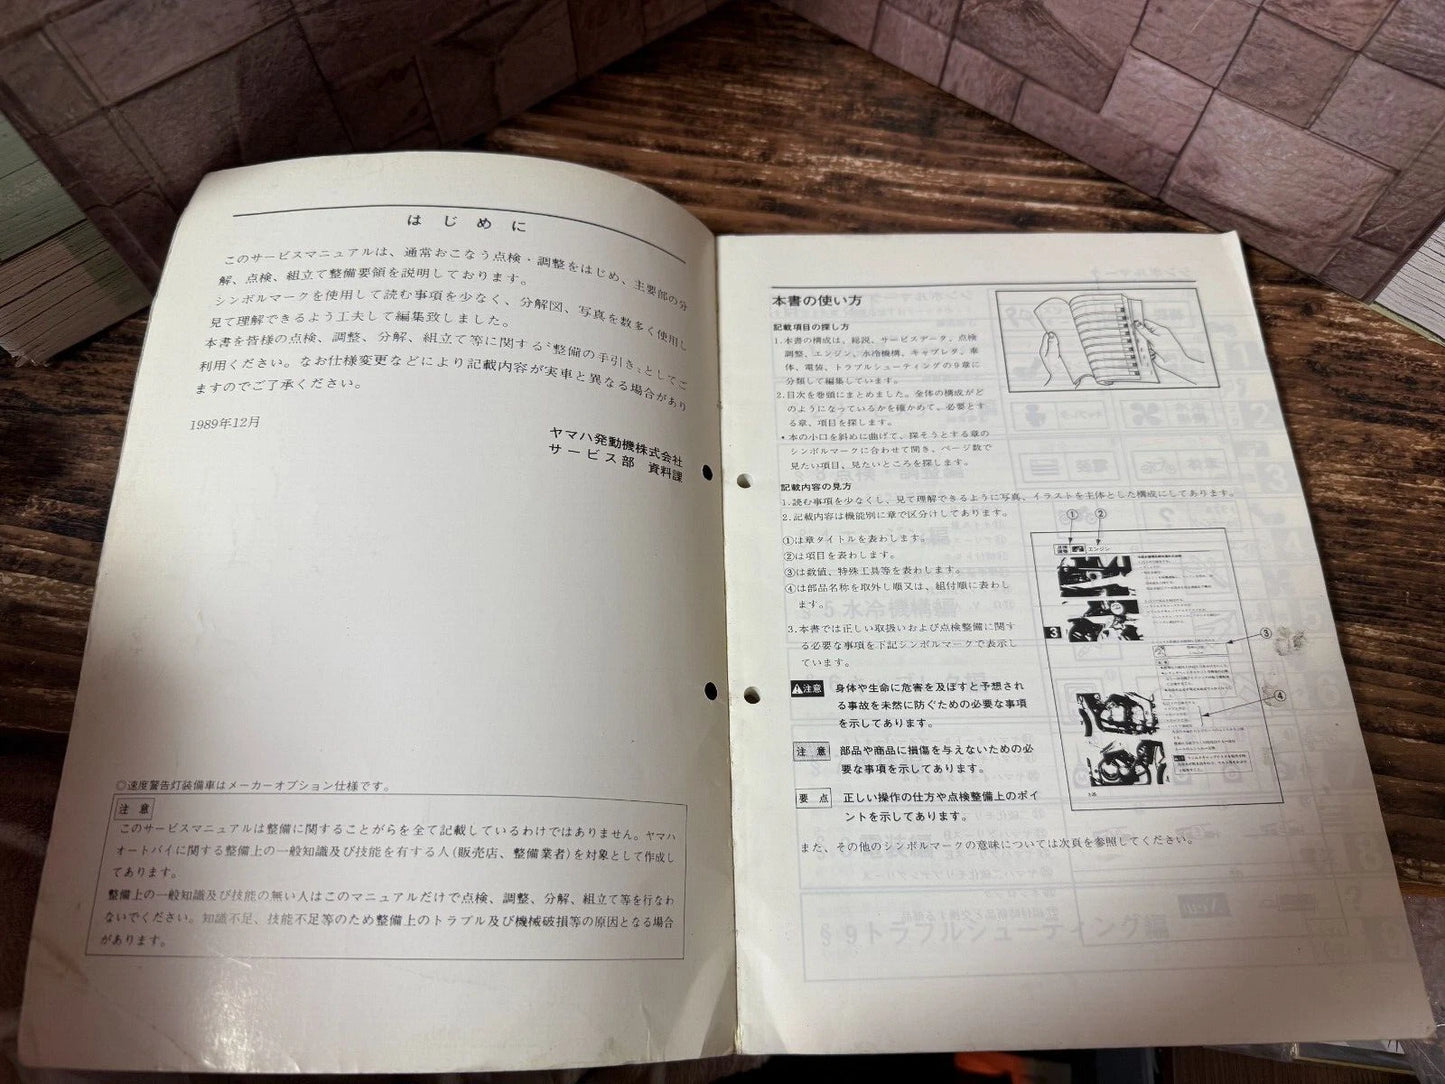 はじめに
このサービスマニュアルは、通常おこなう点検・調整をはじめ、主要部の分
解、点検、組立て整備要領を説明しております。
シンボルマークを使用して読む事項を少なく、分解図、写真を数多く使用し
見て理解できるよう工夫して編集致しました。
本書を皆様の点検、調整、分解、組立て等に関する〝整備の手引き〟としてご
利用ください。なお仕様変更などにより記載内容が実車と異なる場合があり
ますのでご了承ください。
1989年12月
ヤマハ発動機株式会社
サービス部 資料課
◎速度警告灯装備車はメーカーオプション仕様です。
注意
このサービスマニュアルは整備に関することがらを全て記載しているわけではありません。ヤマハ
オートバイに関する整備上の一般知識及び技能を有する人(販売店、整備業者)を対象として作成し
てあります。
整備上の一般知識及び技能の無い人はこのマニュアルだけで点検、調整、分解、組立て等を行なわ
ないでください。知識不足、技能不足等のため整備上のトラブル及び機械破損等の原因となる場合
があります。
本書の使い方
記載項目の探し方
1.本書の構成は、総説、サービスデータ、点検
調整、エンジン、水冷機構、キャブレタ、車
体、電装、トラブルシューティングの9章に
分類して編集しています。
2.目次を巻頭にまとめました。全体の構成がど
のようになっているかを確かめて、必要とす
る章、項目を探します。
•本の小口を斜めに曲げて、探そうとする章の
シンボルマークに合わせて開き、ページ数で
見たい項目、見たいところを探します。
記載内容の見方
1.読む事項を少なくし、見て理解できるように写真、イラストを主体とした構成にしてあります。
2.記載内容は機能別に章で区分けしてあります。
①は章タイトルを表わします。
②は項目を表わします。
③は数値、特殊工具等を表わします。
④は部品名称を取外し順又は、組付順に表わし
ます。
3.本書では正しい取扱いおよび点検整備に関す
る必要な事項を下記シンボルマークで表示し
ています。
⚠注意 身体や生命に危害を及ぼすと予想され
る事故を未然に防ぐための必要な事項
を示してあります。
注意 部品や商品に損傷を与えないための必
要な事項を示してあります。
要点 正しい操作の仕方や点検整備上のポイ
ントを示してあります。
また、その他のシンボルマークの意味については次頁を参照してください。
① ②
エンジン
3
③
④